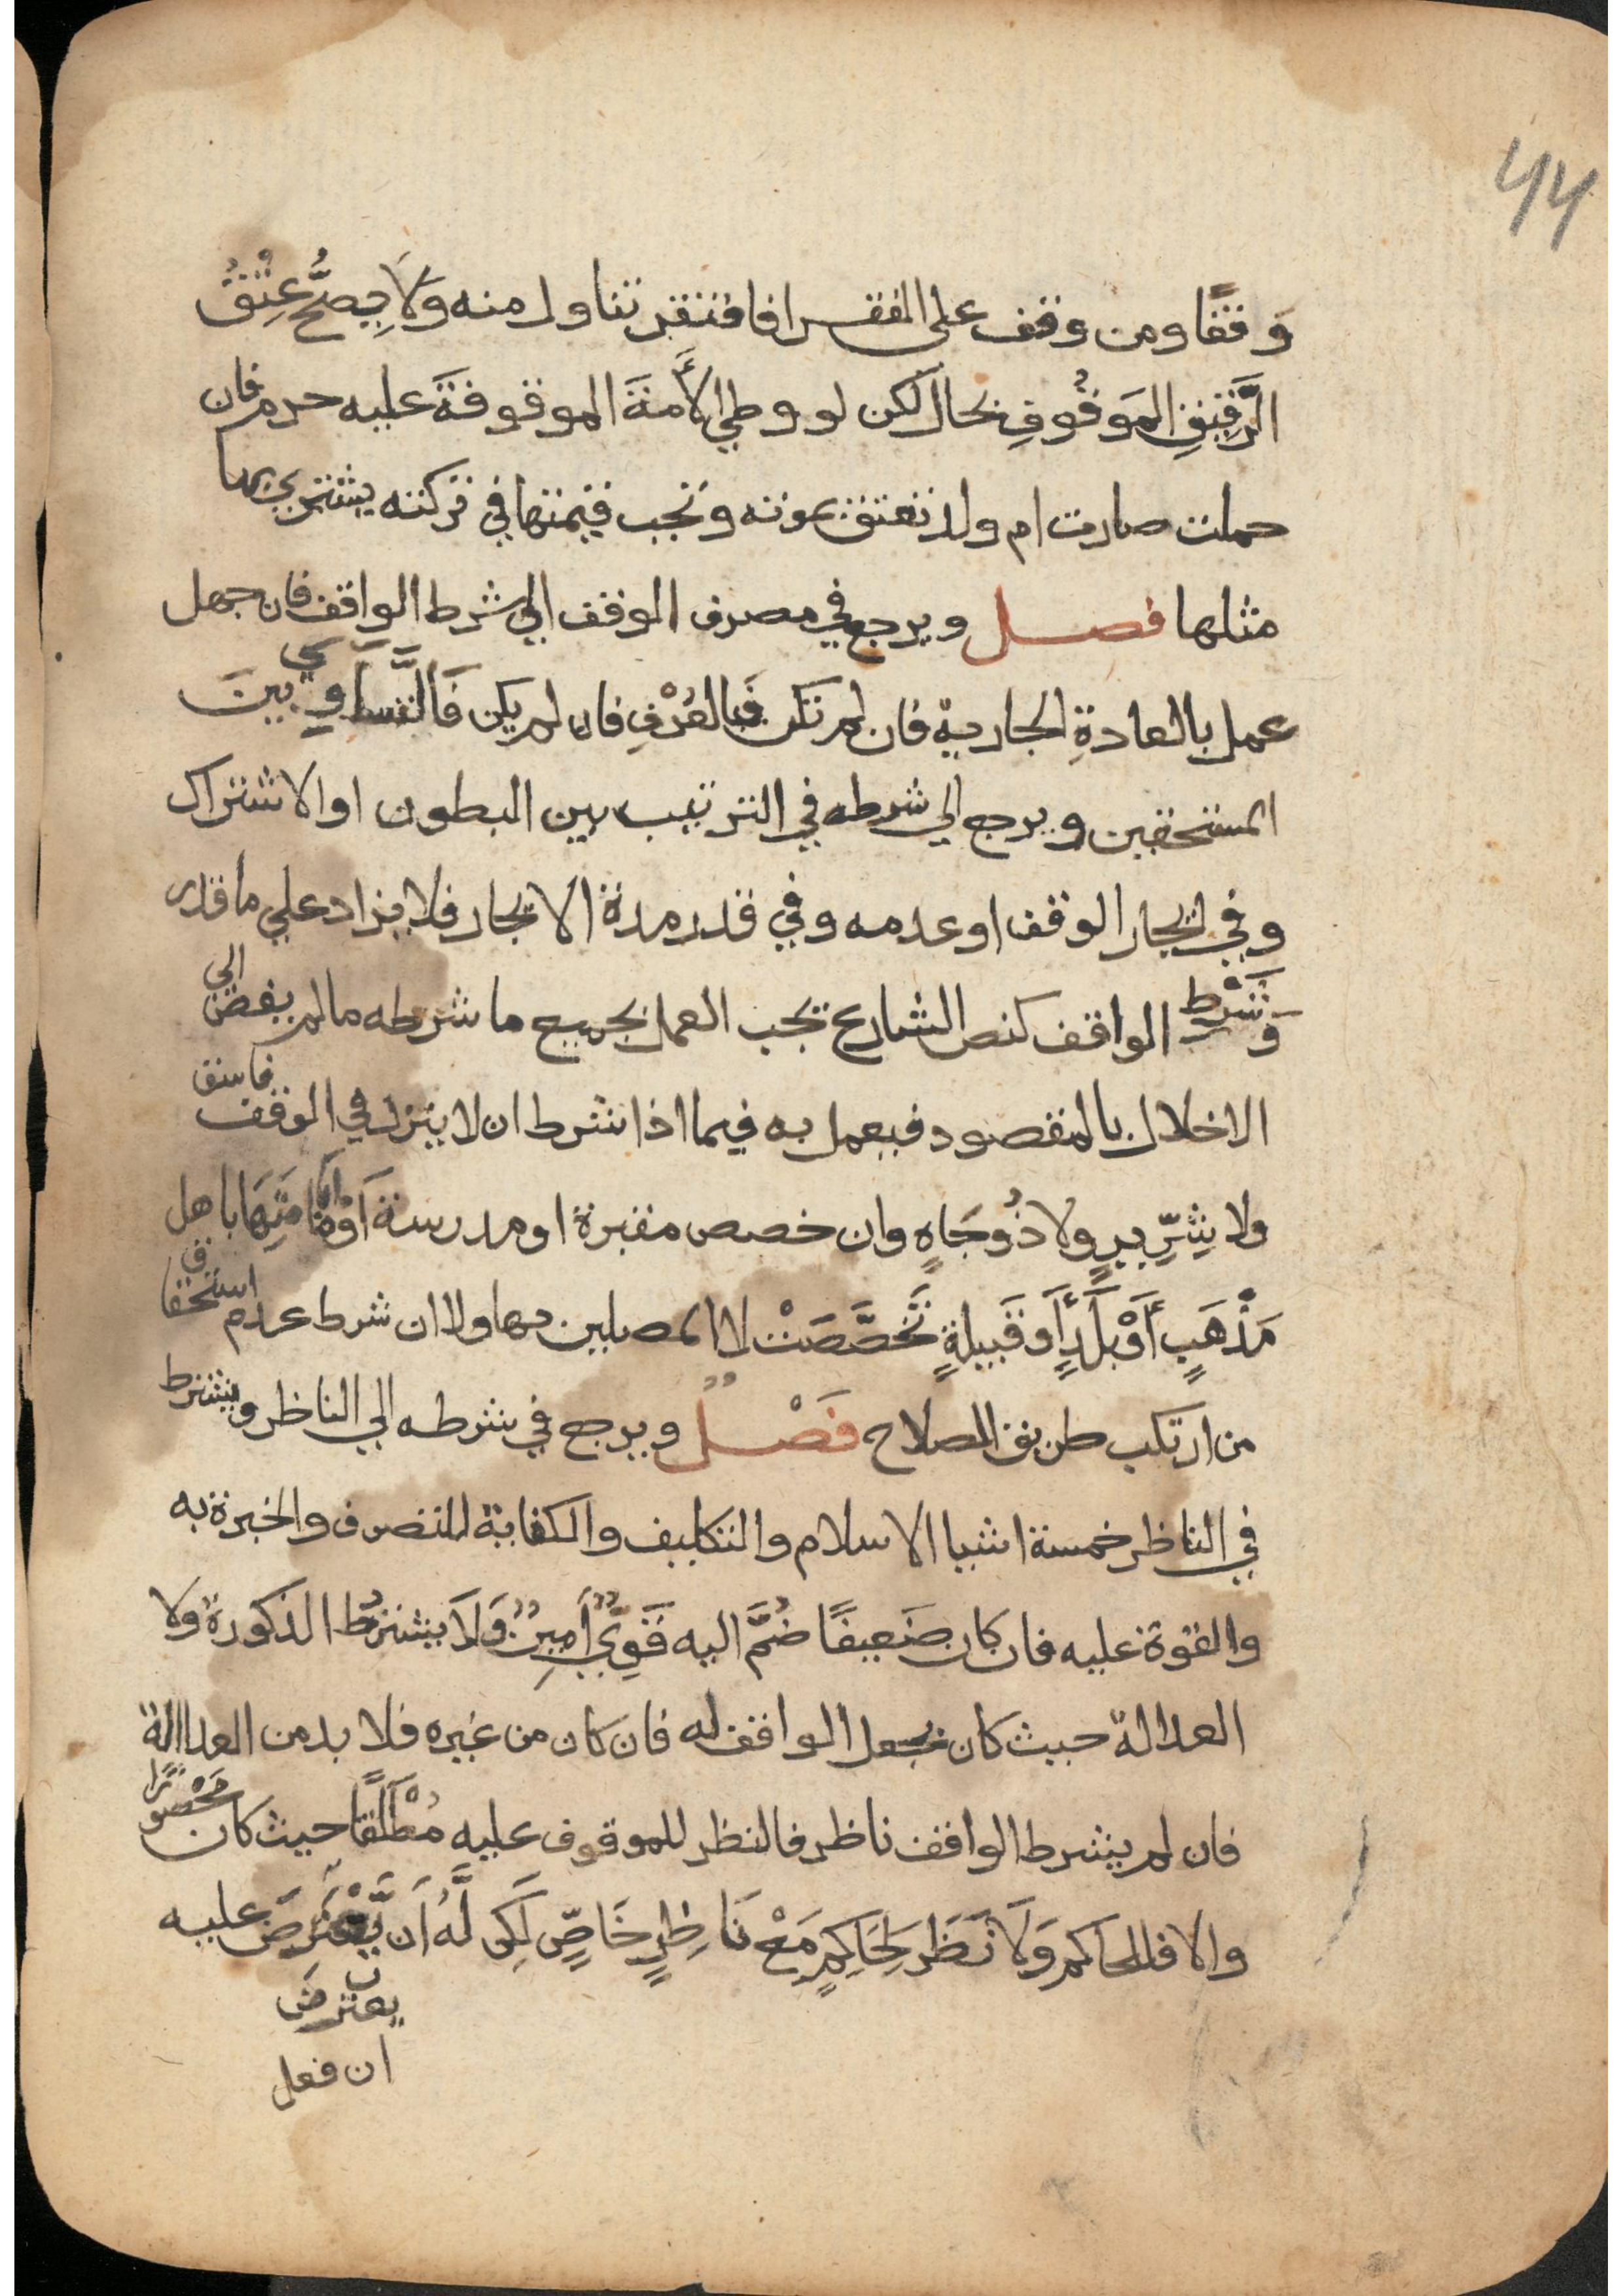 44
وَقفًا ومن وقف على الفقرا فافتقر تناول منه وَلَا يِصحُّ عِتْقُ
الرَّقِيقِ المَوقُوفِ بحال لَكن لو وطي الأَمةَ الموقوفةَ عليه حرم فان
حملت صارت ام ولد تعتق بموته وتجب قيمتها في تركته يشتري بها
مثلها فصل ويرجع في مصرف الوقف الي شرط الواقف فان جهل
عمل بالعادةِ الجارية فان لم تكن فَبالعُرْفِ فان لم يكن فَالتَّسَاوِي بينَ
المستحقين ويرجع الي شرطه في الترتيب بين البطون او الاشتراك
وفي ايجار الوقف او عدمه وفي قدر مدة الايجار فلا يزاد علي ما قدر
وَشَرْط الواقف كنص الشارع يجب العمل بجميع ما شرطه ما لم يفض الي
الاخلال بالمقصود فيعمل به فيما اذا شرط ان لا ينزل في الوقف فاسق
ولا شِرِّيرٍ ولا ذُو جَاهٍ وان خصص مقبرة او مدرسة أَوْ امَامَتِهَا باهل
مَذْهَبٍ أَوْ بَلَدٍ أَو قَبيلةٍ تَخصَّصَتْ لا المصلين بها ولا ان شرط عدم استحقاق
من ارتكب طريق الصلاح فَصْلٌ ويرجع في شرطه الي الناظر ويشترط
في الناظر خمسة اشيا الاسلام والتكليف والكفاية للتصرف والخبرة به
والقوة عليه فان كان ضَعيفًا ضُمَّ اليه قَوِيٌّ أَمِينٌ وَلَا يشترطُ الذكورة ولا
العدالة حيث كان بجعل الواقف له فان كان من غيره فلا بد من العداالة
فان لم يشرط الواقف ناظر فالنظر للموقوف عليه مُطْلَقًا حيث كان مَحْصورًا
والا فللحاكم وَلَا نَظَرَ لِحَاكِمٍ مَعْ نَاظِرٍ خَاصٍّ لَكِن لَّهُ اَن يَّعْتَرِضَ عليه
يعترض
ان فعل